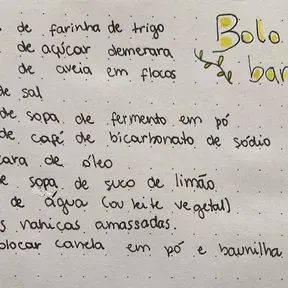 de farinha de trigo
de açúcar demerara
de aveia em flocos
de sal
de sopa de fermento em pó
de café de bicarbonato de sódio
cara de óleo
e sopa de suco de limão
de água (ou leite vegetal)
s nanicas amassadas.
olocar canela em pó e baunilha
Bolo
ban